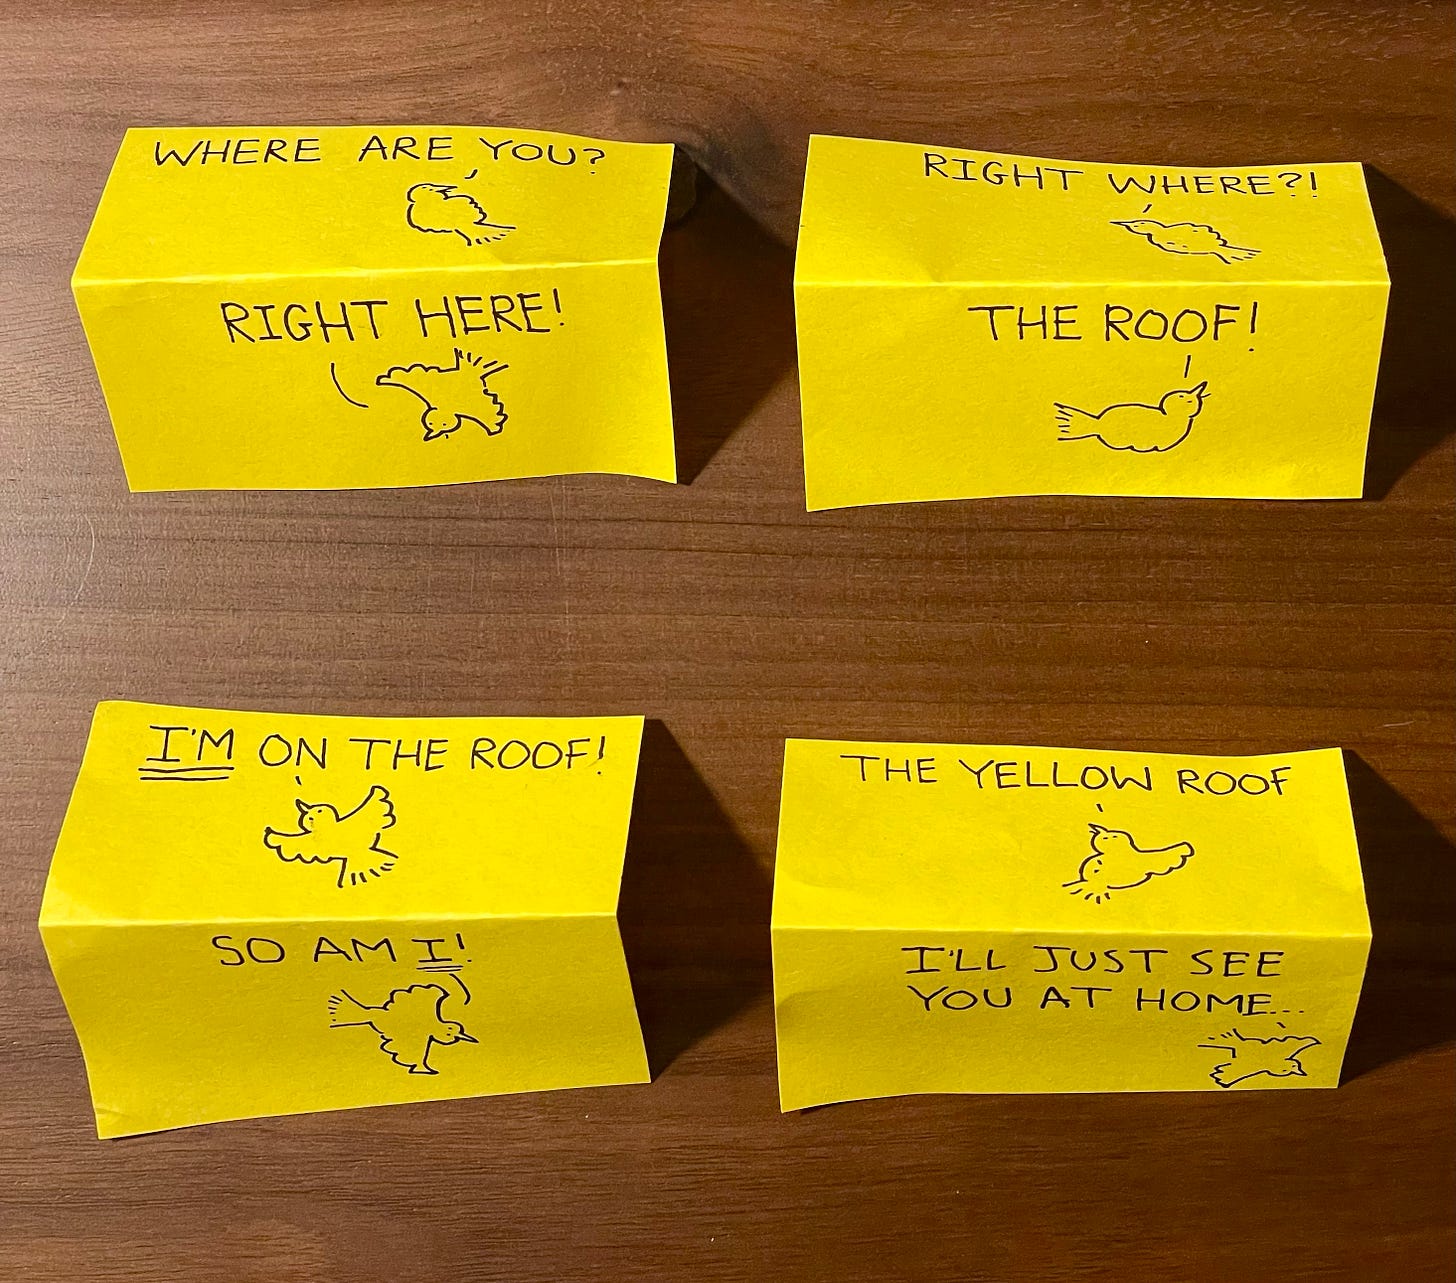 WHERE ARE YOU?
RIGHT HERE!
RIGHT WHERE?!
THE ROOF!
I'M ON THE ROOF!
SO AM I!
THE YELLOW ROOF
I'LL JUST SEE
YOU AT HOME...